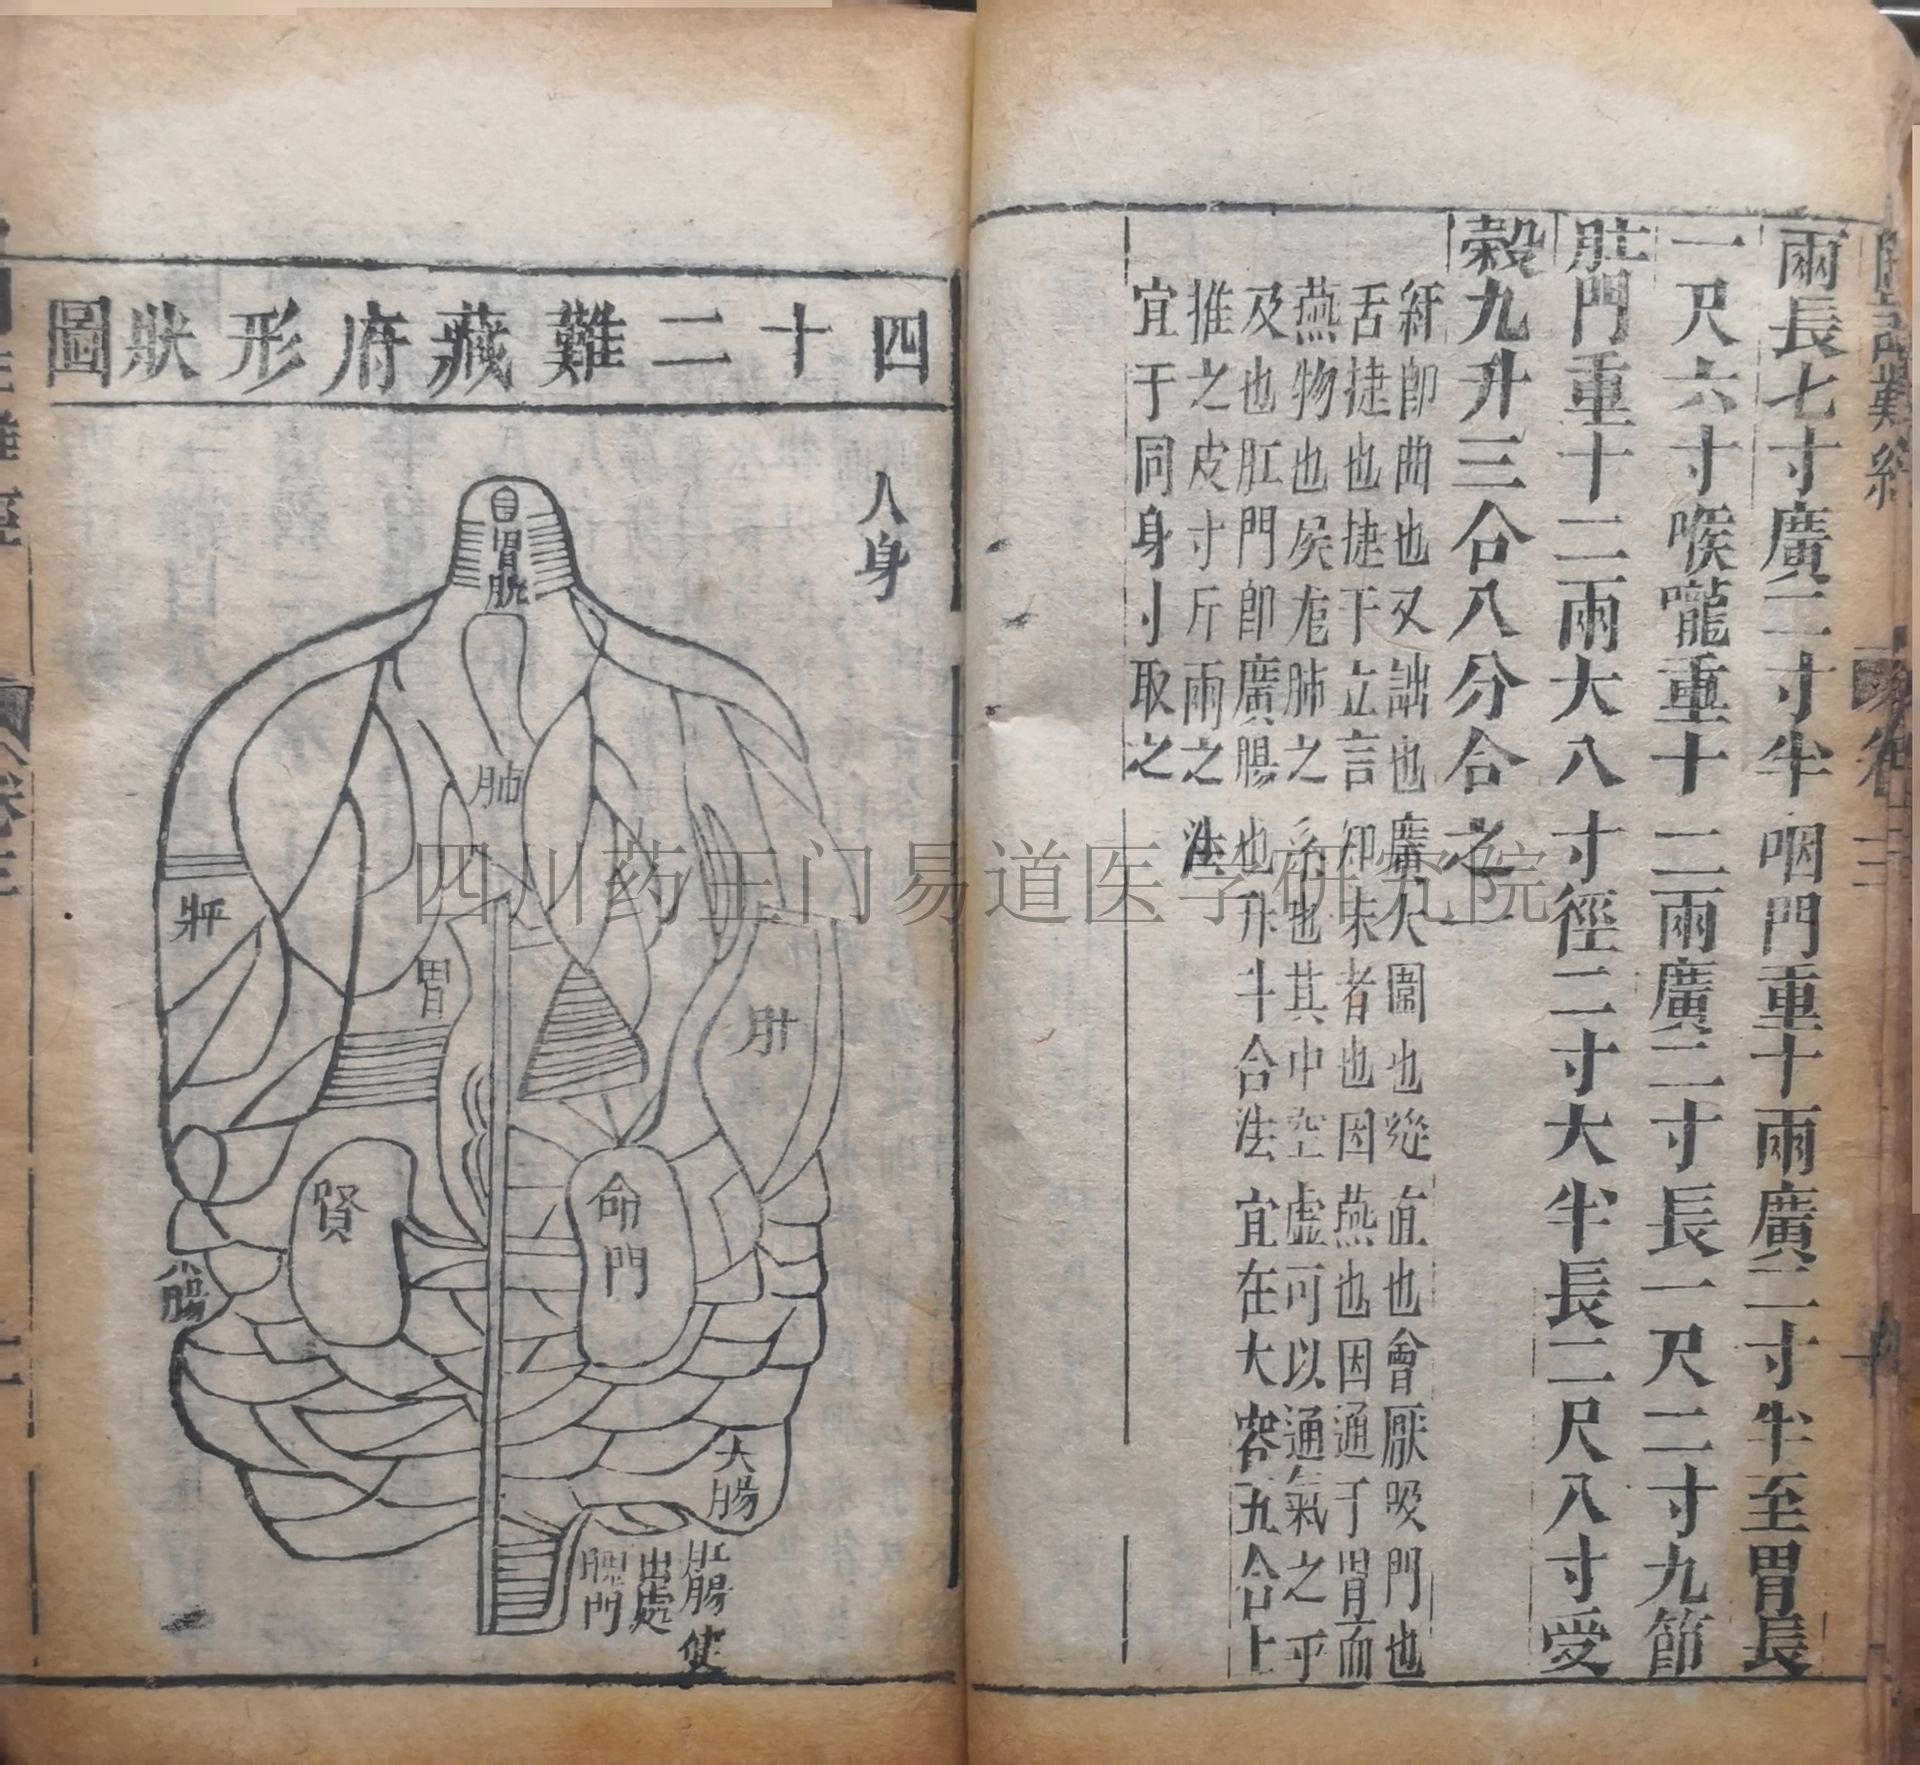 兩長七寸廣二寸半咽門重十兩廣二寸半至胃長
一尺六寸喉嚨重十二兩廣二寸長一尺二寸九節
肛門重十二兩大八寸徑二寸大半長二尺八寸受
穀九升三合八分合之一
紆即曲也又詘也廣大圍也 直也會厭吸門也
舌捷也捷下立言 未者也因燕也因通于胃而
燕物也 肺之系也其中空虛可以通氣之乎
及也肛門即廣腸也升斗合法宜在大容五合上
推之皮寸斤兩之法
宜于同身寸取之
四十二難藏府形狀圖
人身
胃脘
肺
脾
胃
肝
腎
命門
小腸
大腸
肛腸使
出處
門
四川药王门易道医学研究院